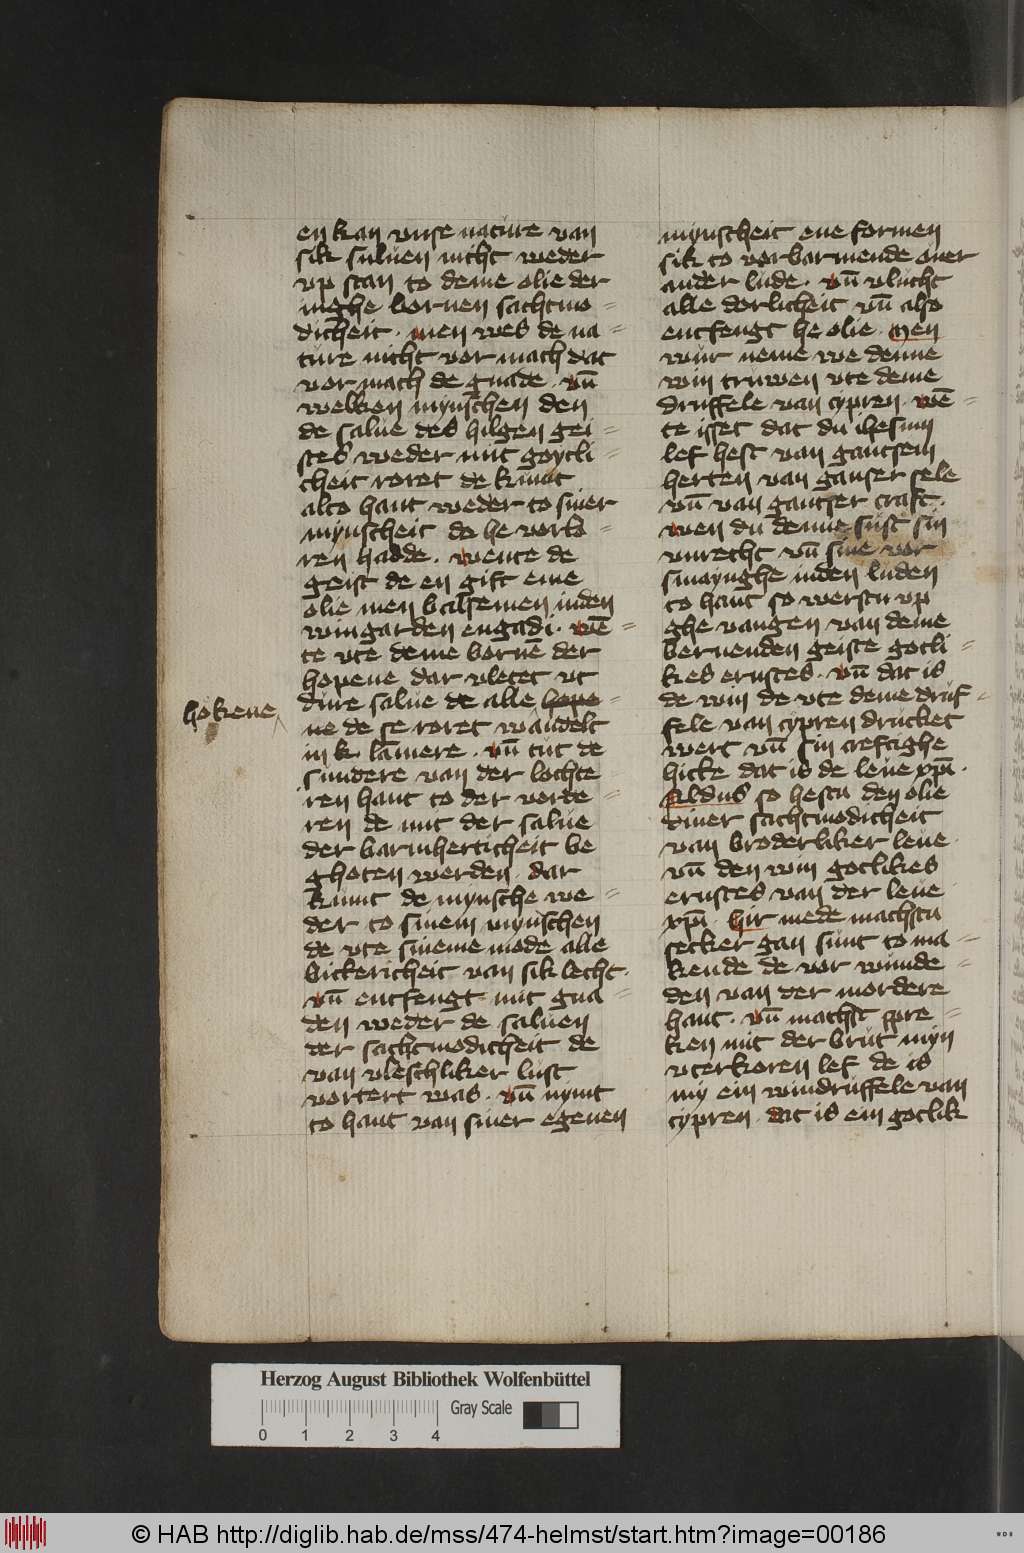 en kan vnse nature van
sik suluen nicht weder
vp stan to deme olie der
nighe bornen sachtmo=
dicheit · men wes de na=
ture nicht vor mach dat
vor mach de gnade · vn̄
welken mynschen den
de salue des hilgen gei=
stes weder mit gotli=
cheit roret de kumt
alto hant weder to siner
mynscheit do he vorlo=
ren hadde · wente de
geist de en gift eme
olie men balsemen inden
wingarden engadi · wē=
te vte deme bornē der
hopene dar vletet vt
dure salue de alle hope
hokene
ne de se roret wandelt
in k lāmere · vn̄ tut de
sundere van der lochte=
ren hant to der vorde=
ren de mit der salue
der barmherticheit be
ghoten werden · dar
kumt de mynsche we=
der to sinem mynschen
de vte sineme mode alle
bickericheit van sik lecht ·
vn̄ entfengt mit gna=
den weder de saluen
der sachtmodicheit de
van vleschliker lust
vortert was · vn̄ nymt
to hant van siner egenen
mynscheit ene formen
sik to vorbarmende ouer
ander lude · vn̄ vlucht
alle dorlicheit vn̄ also
entfengt he olie · Men
wur neme we denne
win truwen vte deme
druffele van cypren · wē=
te isset dat du ihesum
lef hest van gantsem
herten van ganser sele
vn̄ van gantser craft ·
wen du denne sust sin
vnrecht vn̄ sine vor
smaynghe inden luden
to hant so werstu vp
ghe vangen van deme
bernenden geiste gotli=
kes ernstes · vn̄ dat is
de win de vte deme druf=
fele van cypren drucket
wert vn̄ sin creftighe
hicke dat is de leue xpī ·
Aldus so hestu den olie
diner sachtmodicheit
van broderliker leue ·
vn̄ den win gotlikes
ernstes van der leue
xpī · hir mede machstu
secker gan sunt to ma=
kende de vor wunde=
den van der mordere
hant · vn̄ machst spre=
ken mit der brut myn
vterkoren lef de is
my ein windruffele van
cypren · dat is ein gotlik
Herzog August Bibliothek Wolfenbüttel
Gray Scale
0 1 2 3 4
© HAB http://diglib.hab.de/mss/474-helmst/start.htm?image=00186